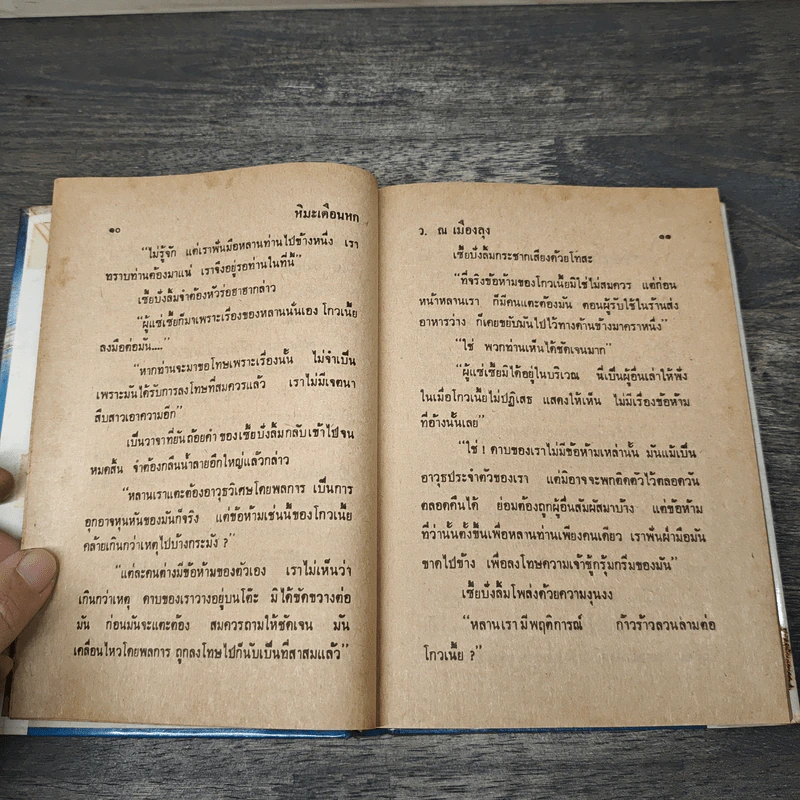 หิมะเดือนหก
๑๐
“ไม่รู้จัก แต่เราฟันมือหลานท่านไปข้างหนึ่ง เรา
ทราบท่านต้องมาแน่ เราจึงอยู่รอท่านในที่นี้”
เซี้ยบั่งลิ้มจำต้องหัวร่อฮาฮากล่าว
“ผู้แซ่เซี้ยก็มาเพราะเรื่องของหลานนั่นเอง โกวเนี้ย
ลงมือต่อมัน....”
“หากท่านจะมาขอโทษเพราะเรื่องนั้น ไม่จำเป็น
เพราะมันได้รับการลงโทษที่สมควรแล้ว เราไม่มีเจตนา
สืบสาวเอาความอีก”
เป็นวาจาที่ยันถ้อยคำ ของเซี้ยบั่งลิ้มกลับเข้าไปจน
หมดสิ้น จำต้องกลืนน้ำลายอึกใหญ่แล้วกล่าว
“หลานเราแตะต้องอาวุธวิเศษโดยพลการ เป็นการ
อุกอาจหุนหันของมันก็จริง แต่ข้อห้ามเช่นนี้ของโกวเนี้ย
คล้ายเกินกว่าเหตุไปบ้างกระมัง ?”
“แต่ละคนต่างมีข้อห้ามของตัวเอง เราไม่เห็นว่า
เกินกว่าเหตุ ดาบของเราวางอยู่บนโต๊ะ มิได้ขัดขวางต่อ
มัน ก่อนมันจะแตะต้อง สมควรถามให้ชัดเจน มัน
เคลื่อนไหวโดยพลการ ถูกลงโทษไปก็นับเป็นที่สาสมแล้ว”
ว. ณ เมืองลุง
๑๑
เซี้ยบั่งลิ้มกระชากเสียงด้วยโทสะ
“ที่จริงข้อห้ามของโกวเนี้ยมิใช่ไม่สมควร แต่ก่อน
หน้าหลานเรา ก็มีคนแตะต้องมัน ตอนผู้รับใช้ในร้านส่ง
อาหารว่าง ก็เคยขยับมันไปไว้ทางด้านข้างมาคราหนึ่ง”
“ใช่ พวกท่านเห็นได้ชัดเจนมาก”
“ผู้แซ่เซี้ยมิได้อยู่ในบริเวณ นี่เป็นผู้อื่นเล่าให้ฟัง
ในเมื่อโกวเนี้ยไม่ปฏิเสธ แสดงให้เห็น ไม่มีเรื่องข้อห้าม
ที่อ้างนั้นเลย”
“ใช่ ! ดาบของเราไม่มีข้อห้ามเหล่านั้น มันแม้เป็น
อาวุธประจำตัวของเรา แต่มิอาจจะพกติดตัวไว้ตลอดวัน
ตลอดคืนได้ ย่อมต้องถูกผู้อื่นสัมผัสมาบ้าง แต่ข้อห้าม
ที่ว่านั้นตั้งขึ้นเพื่อหลานท่านเพียงคนเดียว เราฟันฝ่ามือมัน
ขาดไปข้าง เพื่อลงโทษความเจ้าชู้กรุ้มกริ่มของมัน”
เซี้ยบั่งลิ้มโพล่งด้วยความงุนงง
“หลานเรามีพฤติการณ์ ก้าวร้าวลวนลามต่อ
โกวเนี้ย ?”